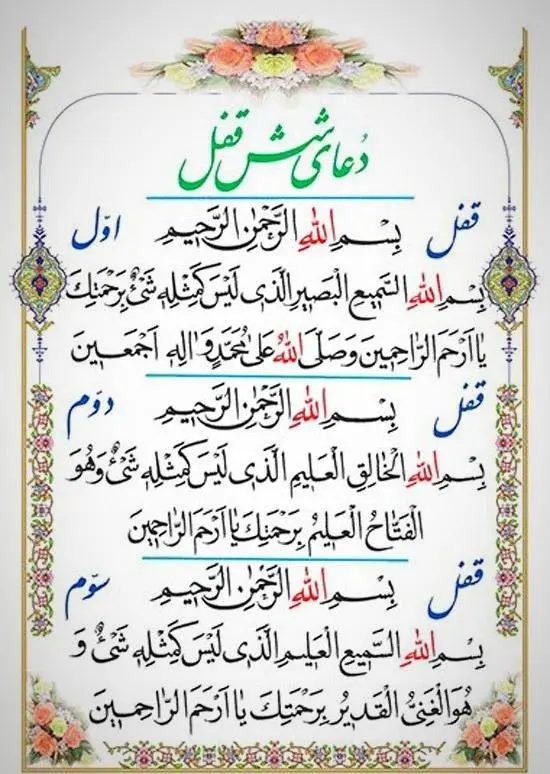 دُعای شش قفل
قفل اوّل بِسْمِ اللهِ الرَّحْمٰنِ الرَّحیمِ
بِسْمِ اللهِ السَّمیعِ الْبَصیرِ الَّذی لَیْسَ کَمِثْلِهِ شَیْءٌ بِرَحْمَتِكَ
یا اَرْحَمَ الرّاحِمینَ وَصَلَّی اللهُ عَلیٰ مُحَمَّدٍ وَ الِهِ اَجْمَعینَ
قفل دوّم بِسْمِ اللهِ الرَّحْمٰنِ الرَّحیمِ
بِسْمِ اللهِ الْخالِقِ الْعَلیمِ الَّذی لَیْسَ کَمِثْلِهِ شَیْءٌ وَهُوَ
الْفَتّاحُ الْعَلیمُ بِرَحْمَتِكَ یا اَرْحَمَ الرّاحِمینَ
قفل سوّم بِسْمِ اللهِ الرَّحْمٰنِ الرَّحیمِ
بِسْمِ اللهِ السَّمیعِ الْعَلیمِ الَّذی لَیْسَ کَمِثْلِهِ شَیْءٌ وَ
هُوَ الْغَنِیُّ الْقَدیرُ بِرَحْمَتِكَ یا اَرْحَمَ الرّاحِمینَ